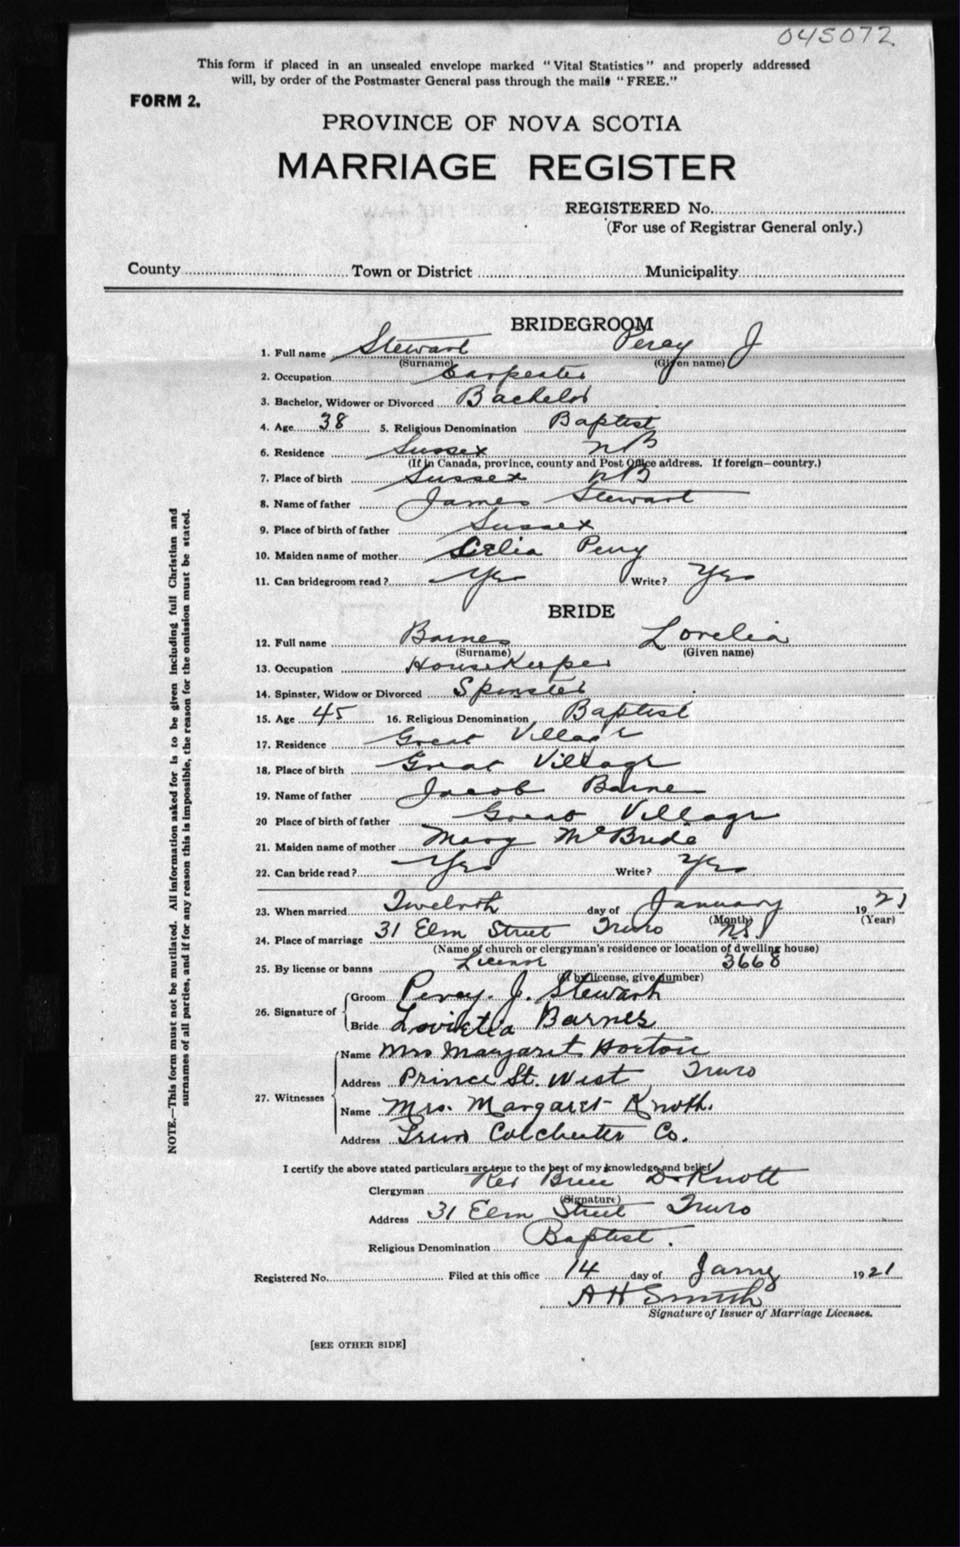 045072
This form if placed in an unsealed envelope marked "Vital Statistics" and properly addressed
will, by order of the Postmaster General pass through the mails "FREE."
FORM 2.
PROVINCE OF NOVA SCOTIA
MARRIAGE REGISTER
REGISTERED No.
(For use of Registrar General only.)
County Town or District Municipality
BRIDEGROOM
1. Full name Stewart Percy J
(Surname) (Given name)
2. Occupation Carpenter
3. Bachelor, Widower or Divorced Bachelor
4. Age 38 5. Religious Denomination Baptist
6. Residence Sussex NB
(If in Canada, province, county and Post Office address. If foreign—country.)
7. Place of birth Sussex NB
8. Name of father James Stewart
9. Place of birth of father Sussex
10. Maiden name of mother Perry
11. Can bridegroom read? Yes Write? Yes
BRIDE
12. Full name Barnes Lorelia
(Surname) (Given name)
13. Occupation HouseKeeper
14. Spinster, Widow or Divorced Spinster
15. Age 45 16. Religious Denomination Baptist
17. Residence Great Village
18. Place of birth Great Village
19. Name of father Jacob Barne
20 Place of birth of father Great Village
21. Maiden name of mother Mary McBride
22. Can bride read? Yes Write? Yes
23. When married Twelvth day of January 1921
(Month) (Year)
24. Place of marriage 31 Elm Street Truro NS
(Name of church or clergyman's residence or location of dwelling house)
25. By license or banns License 3668
(If by license, give number)
26. Signature of
Groom Percy. J. Stewart
Bride Barnes
27. Witnesses
Name Mrs Margaret Horton
Address Prince St. West Truro
Name Mrs. Margaret Knott.
Address Truro Colchester Co.
I certify the above stated particulars are true to the best of my knowledge and belief
Clergyman Rev D Knott
(Signature)
Address 31 Elm Street Truro
Religious Denomination Baptist.
Registered No. Filed at this office 14 day of Jany 1921
A H Smith
Signature of Issuer of Marriage Licenses.
[SEE OTHER SIDE]
NOTE.—This form must not be mutilated. All information asked for is to be given including full Christian and
surnames of all parties, and if for any reason this is impossible, the reason for the omission must be stated.